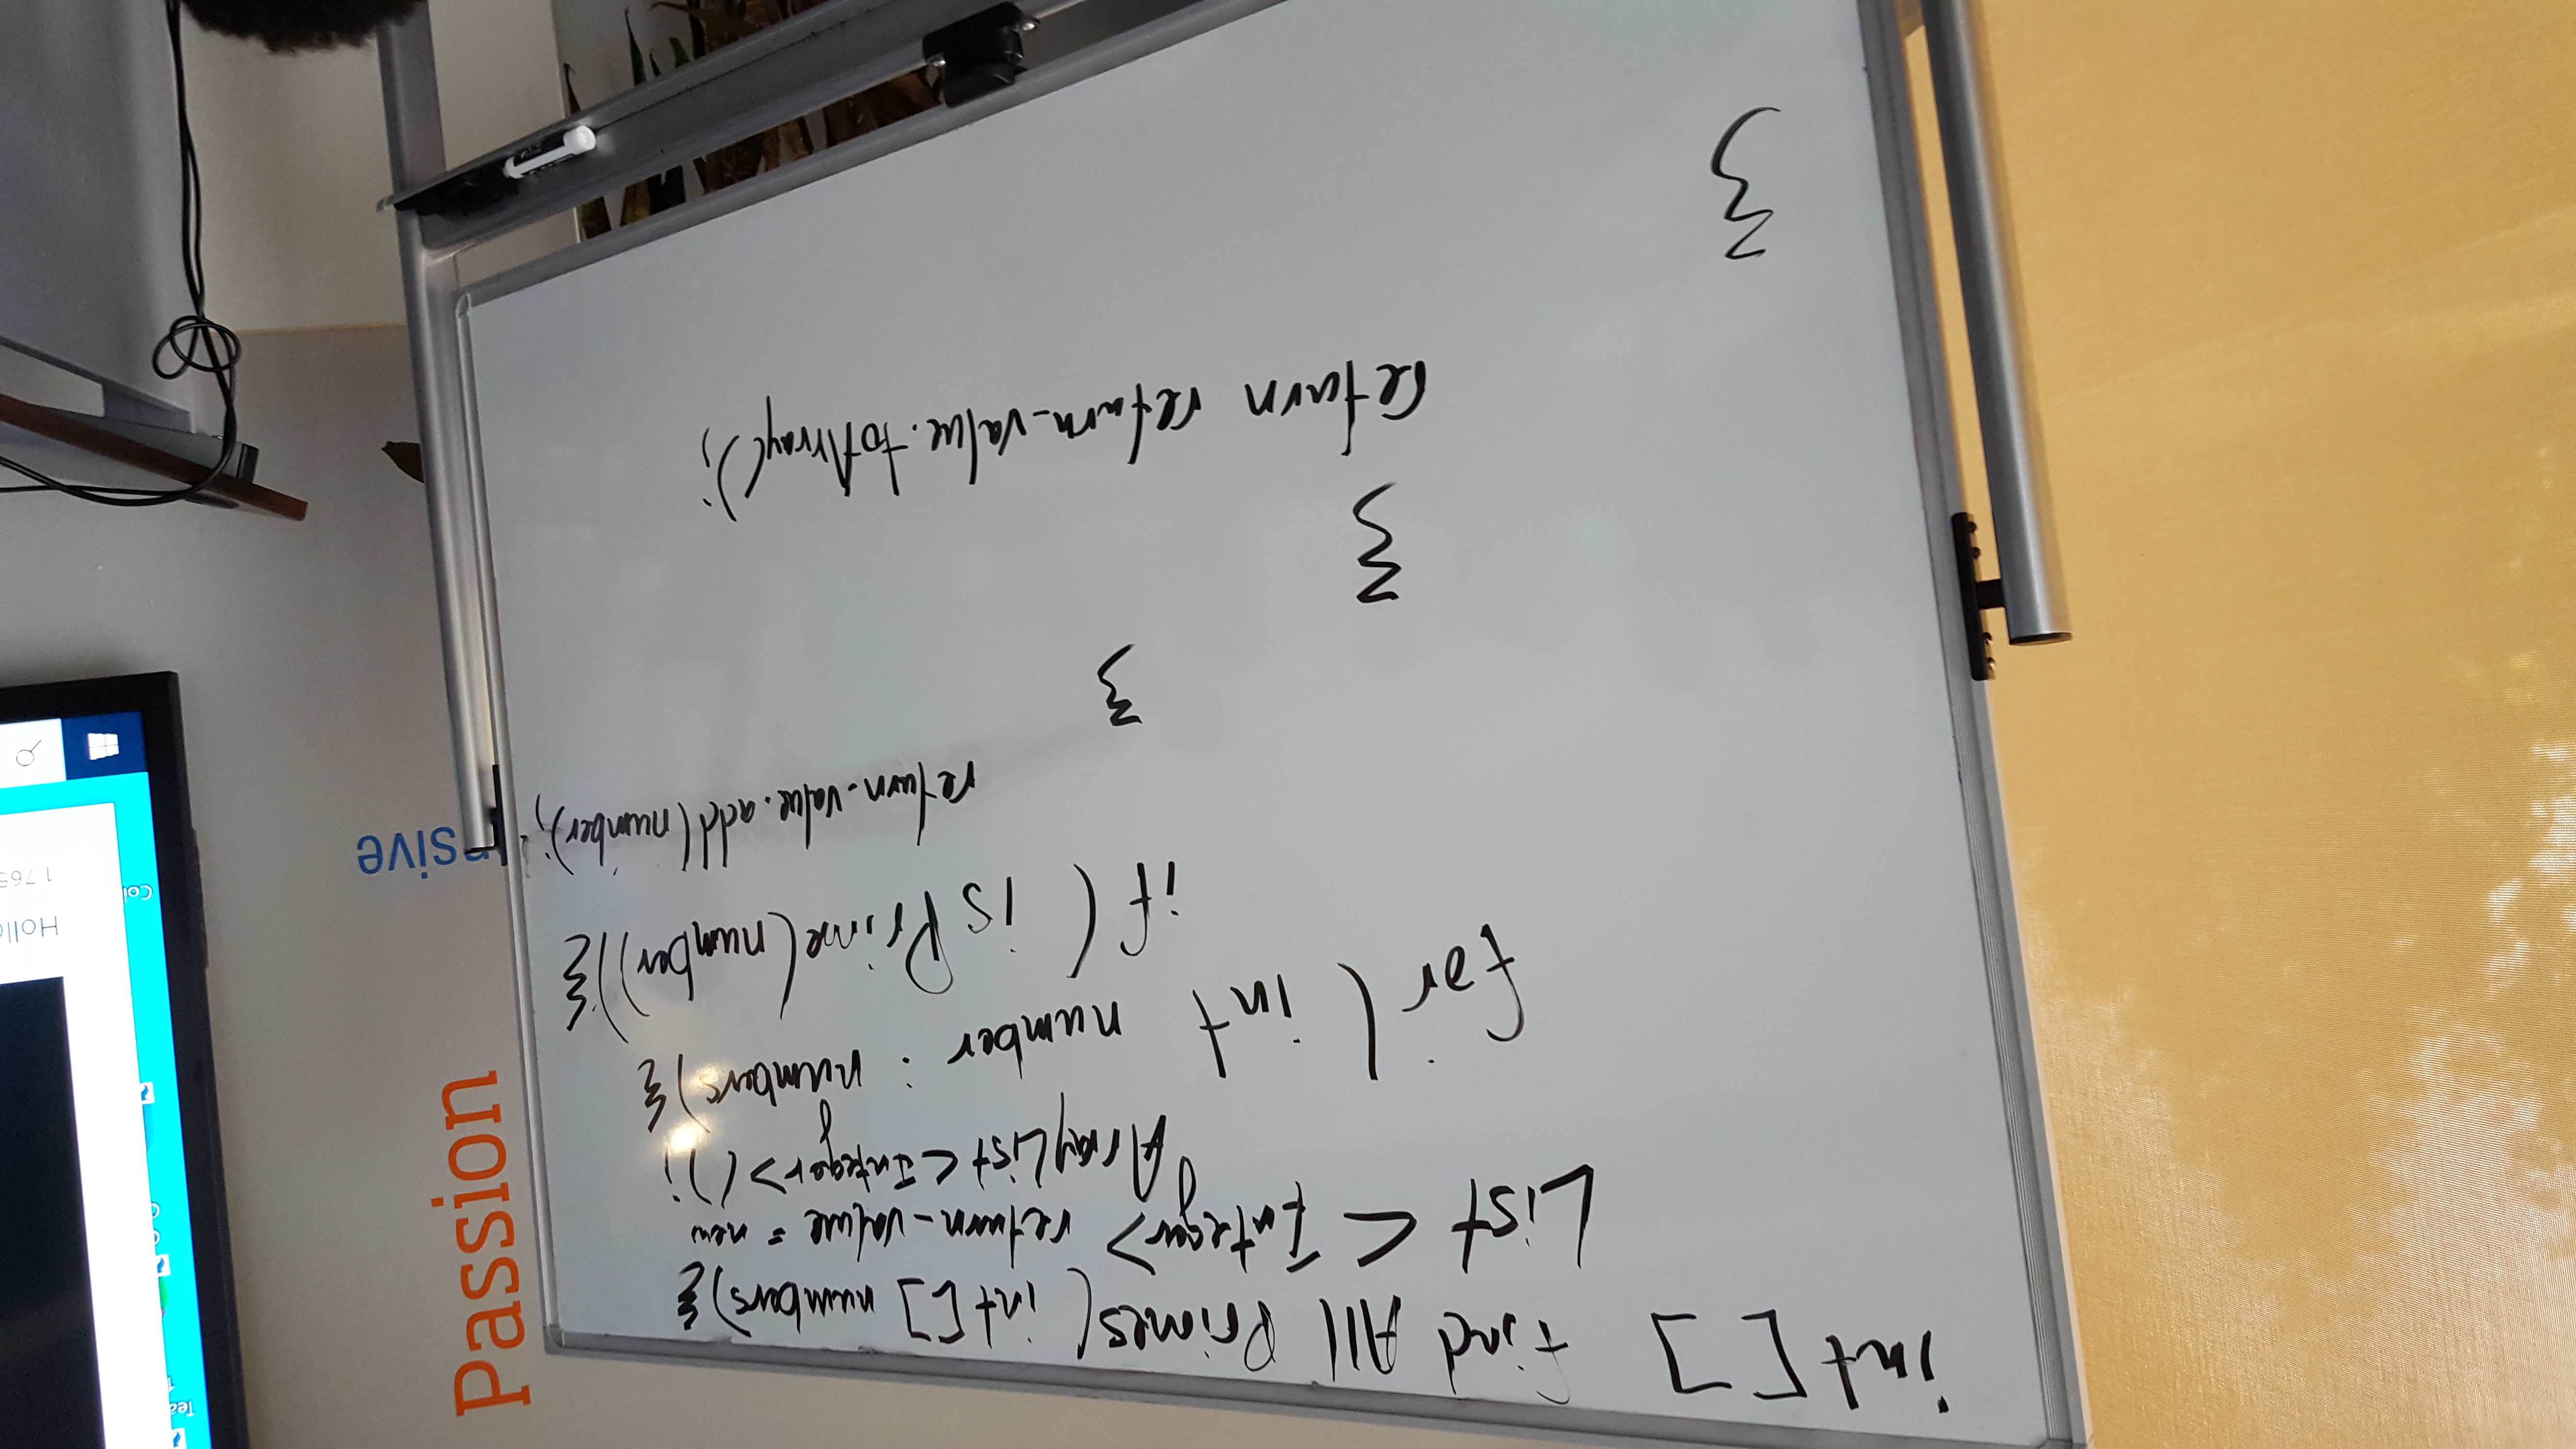 int[] find All Primes(int[] numbers){
List <Integer> return_value = new
ArrayList<Integer>();
for( int number : numbers){
if( isPrime(number)){
return_value.add(number);
}
}
return return_value.toArray();
}
Passion
nsive
Tea
Col
Holl
1765